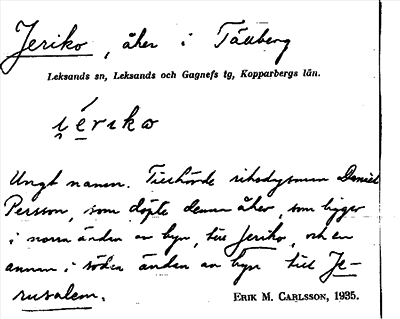 Jeriko, åker i Tällberg
Leksands sn, Leksands och Gagnefs tg, Kopparbergs län.
i̯ériko
Ungt namn. Tillhörde riksdagsman Daniel
Persson, som döpte denna åker, som ligger
i norra ändan av byn, till Jeriko, och en
annan i södra ändan av byn till Je-
rusalem.
ERIK M. CARLSSON, 1935.